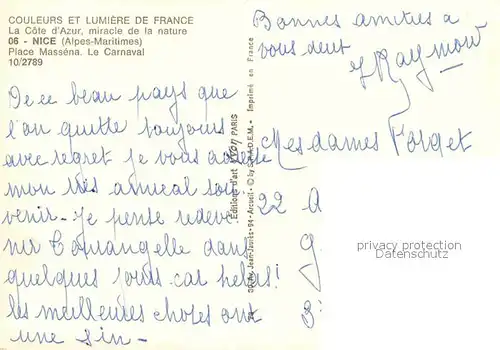 COULEURS ET LUMIÈRE DE FRANCE
La Côte d'Azur, miracle de la nature
06 - NICE (Alpes-Maritimes)
Place Masséna. Le Carnaval
10/2789
De ce beau pays que
l'on quitte toujours
avec regret je vous adresse
mon très amical sou
venir - Je pense redeve
nir
dans
quelques jours car helas!
les meilleures choses ont
une fin -
Editions d'art YVON PARIS
Jean-Jaurès - 94 - Arcueil - © by S.P.A.D.E.M. - Imprimé en France
Bonnes amitiés a
vous deux
Raymond
Mesdames Forget
22 A
9
3
privacy protection
Datenschutz